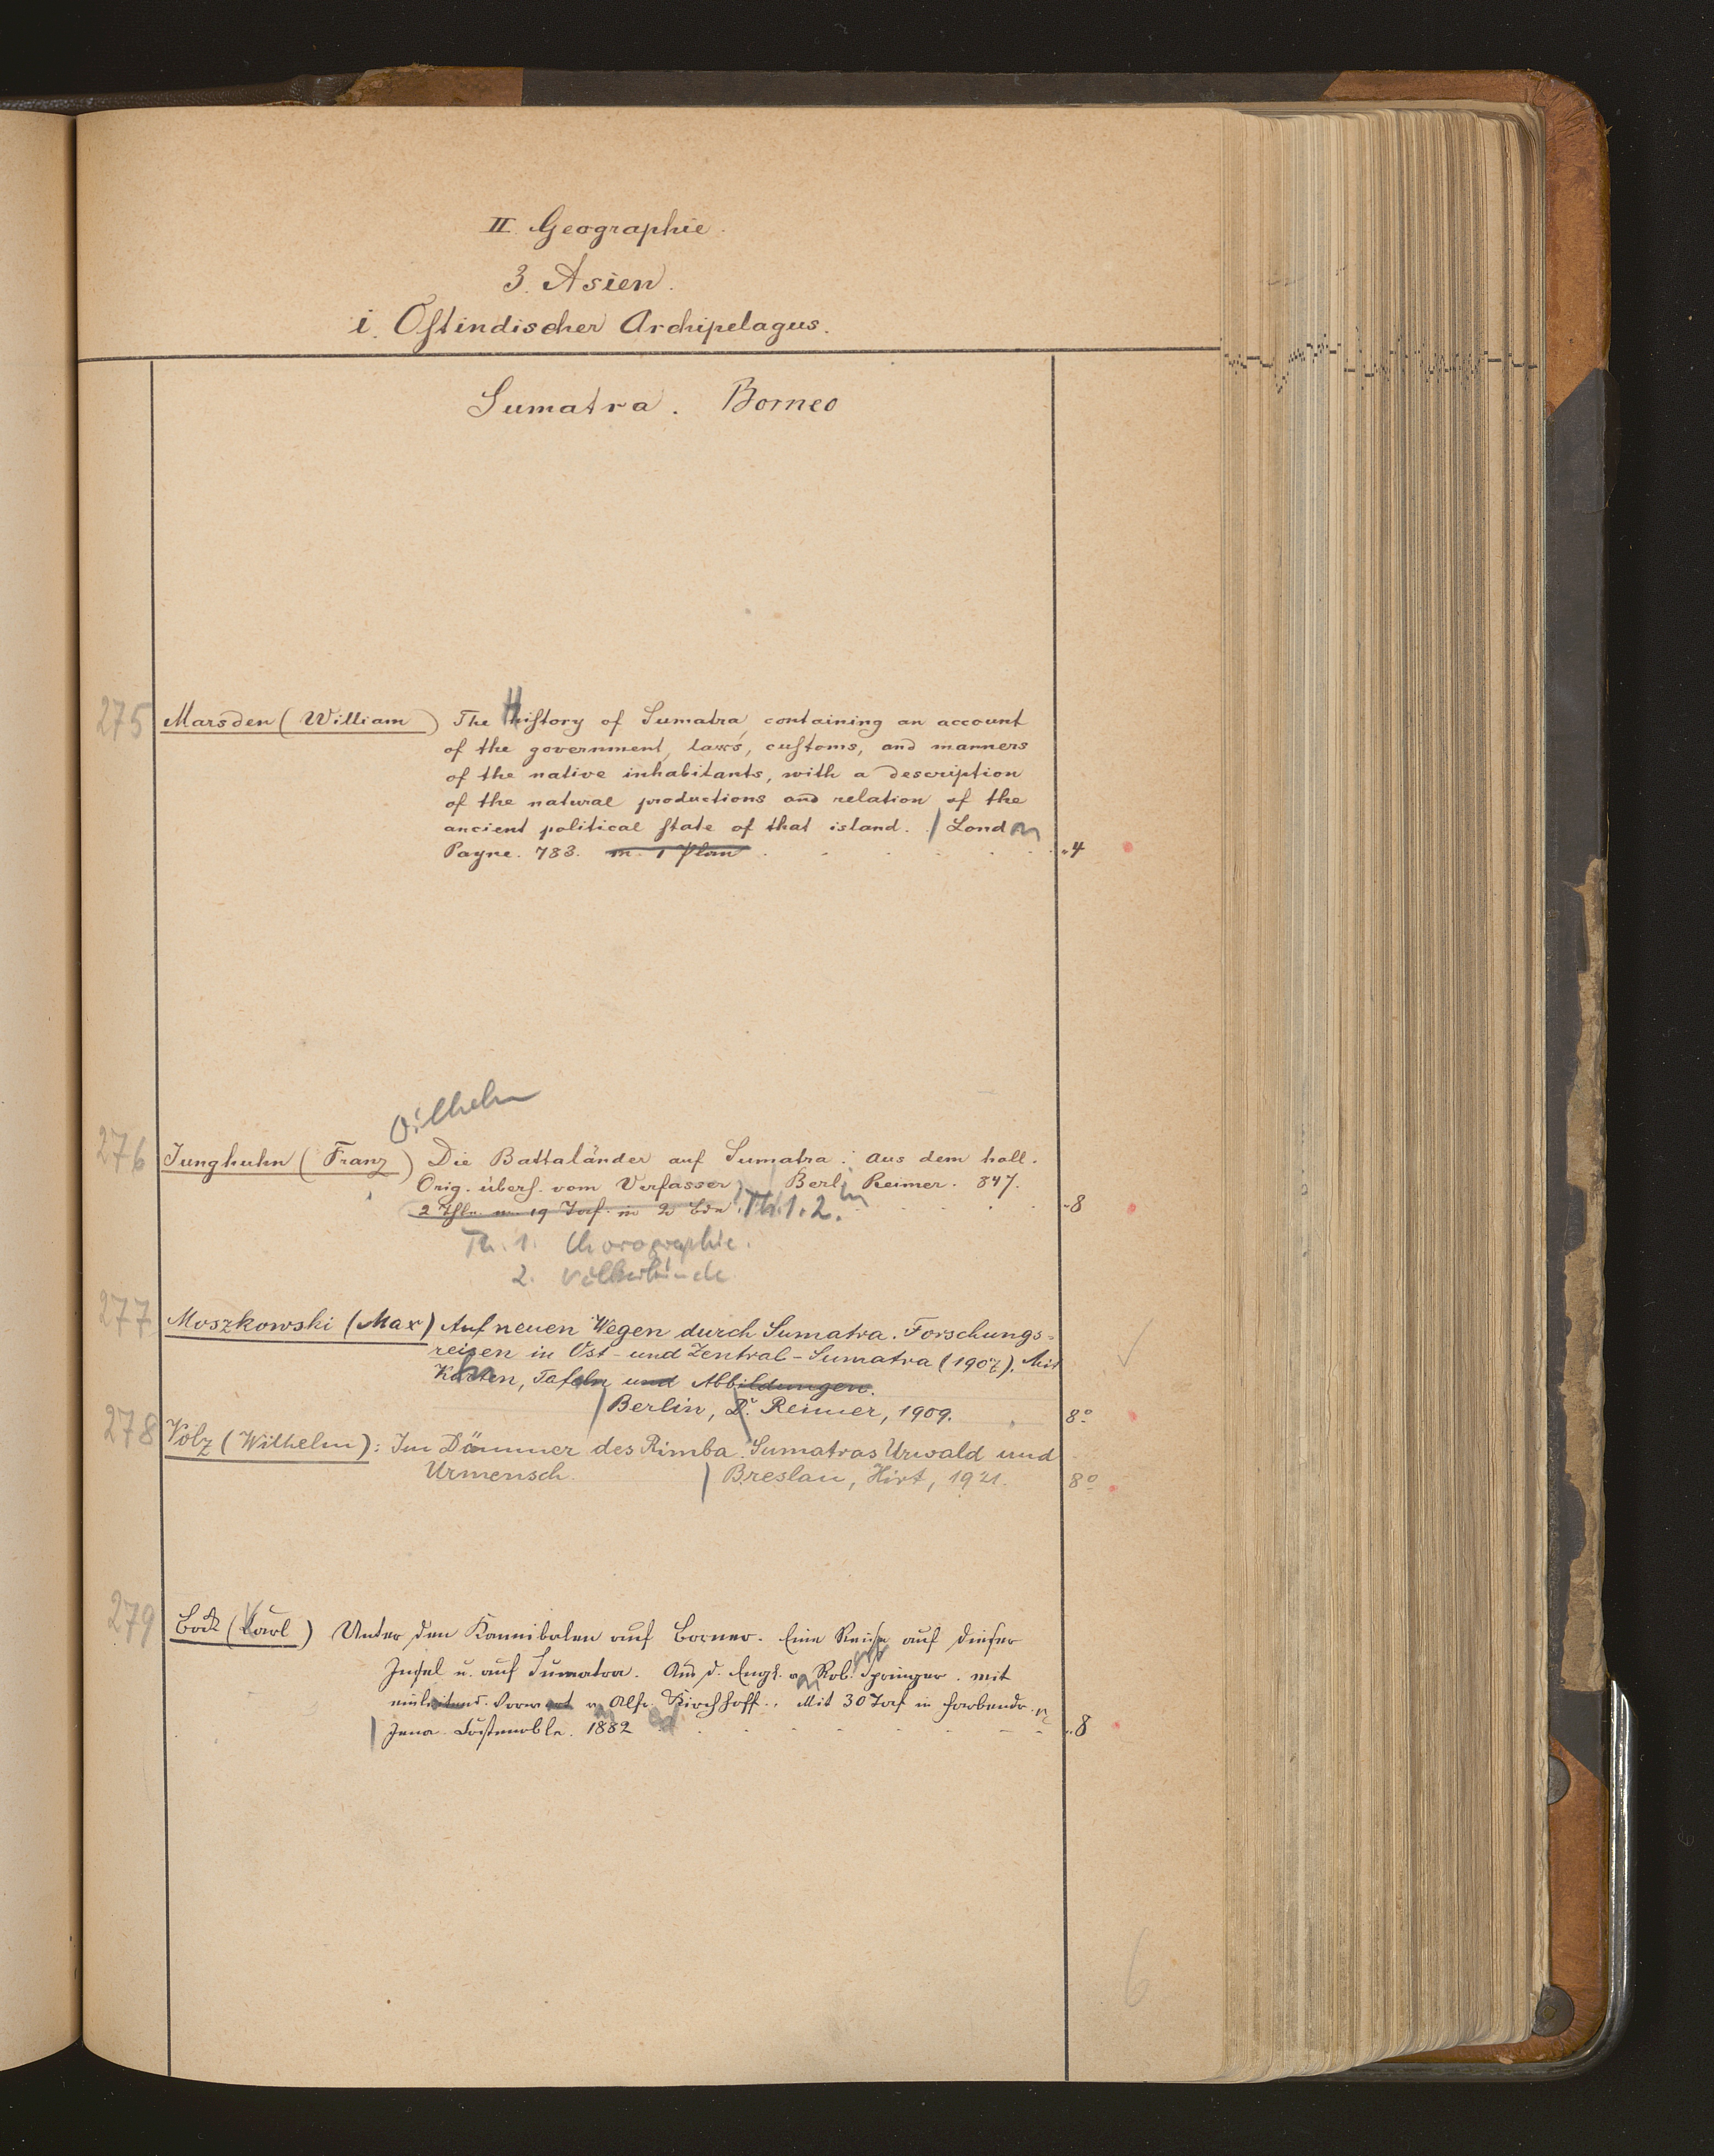 II. Geographie.
3. Asien.
i. Oſtindischer Archipelagus.
Sumatra. Borneo
275 Marsden (William) The Hiſtory of Sumatra, containing an account
of the government, laws, cuſtoms, and manners
of the native inhabitants, with a description
of the natural productions and relation of the
ancient political ſtate of that island. / London
Payne. 783. m. 1 Plan . . . . . . 4
Wilhelm
276 Junghuhn (Franz) Die Battaländer auf Sumatra. Aus dem holl.
Orig. überſ. vom Verfasser. / Berlin Reimer. 847.
2 Thle. m. 19 Taf. in 2 Bdn. Th. 1. 2. . . . . 8
Th. 1. Chorographie.
2. Völkerkunde
277 Moszkowski (Max) Auf neuen Wegen durch Sumatra. Forschungs=
reisen in Ost- und Zentral-Sumatra (1907). Mit
Karten, Tafeln und Abbildungen.
/ Berlin, D. Reimer, 1909. 8º
278 Volz (Wilhelm): Im Dämmer des Rimba. Sumatras Urwald und
Urmensch. / Breslau, Hirt, 1921. 8º
279 Bock (Karl) Unter den Kannibalen auf Borneo. Eine Reise auf dieser
Insel u. auf Sumatra. Aus d. Engl. v. Rob. Springer. mit
einleitend. Vorwort v. Alfr. Kirchhoff. Mit 30 Taf in Farbendr.
/ Jena. Costenoble. 1882 . . . . . . 8
6